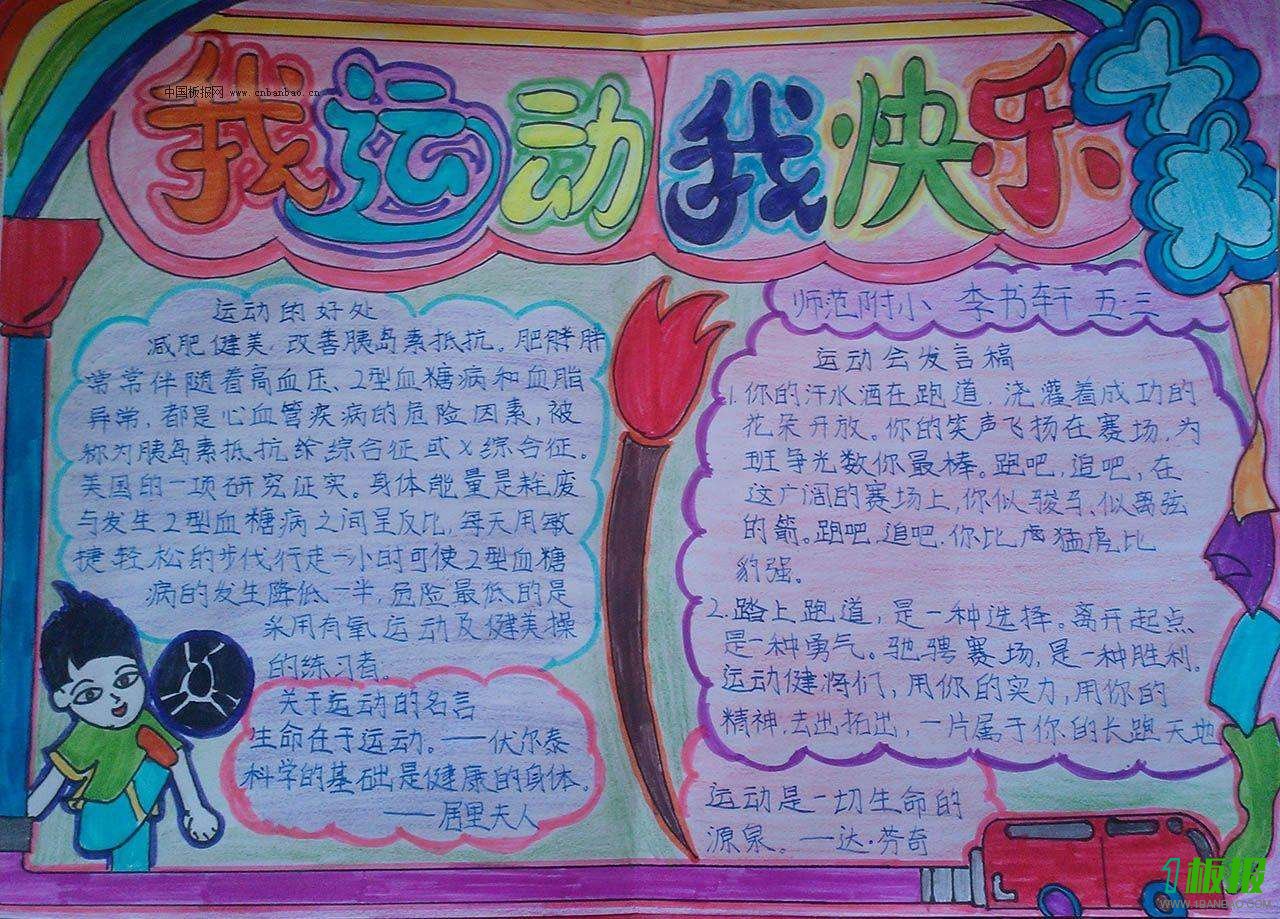 我运动我快乐
中国板报网 www.cnbanbao.cn
运动的好处
减肥健美,改善胰岛素抵抗。肥胖胖
常常伴随着高血压、2型血糖病和血脂
异常,都是心血管疾病的危险因素,被
称为胰岛素抵抗综合征或X综合征。
美国的一项研究证实。身体能量是耗废
与发生2型血糖病之间呈反比,每天用敏
捷轻松的步伐行走一小时可使2型血糖
病的发生降低一半,危险最低的是
采用有氧运动及健美操
的练习者。
关于运动的名言
生命在于运动。——伏尔泰
科学的基础是健康的身体。
——居里夫人
师范附小 李书轩 五.三
运动会发言稿
1.你的汗水洒在跑道,浇灌着成功的
花朵开放。你的笑声飞扬在赛场,为
班争光数你最棒。跑吧,追吧,在
这广阔的赛场上,你似骏马,似离弦
的箭。跑吧,追吧,你比虎猛虎比
豹强。
2.踏上跑道,是一种选择。离开起点
是一种勇气。驰骋赛场,是一种胜利。
运动健将们,用你的实力,用你的
精神,去出拓出,一片属于你的长跑天地
运动是一切生命的
源泉。—达·芬奇
1板报
WWW.1BANBAO.COM